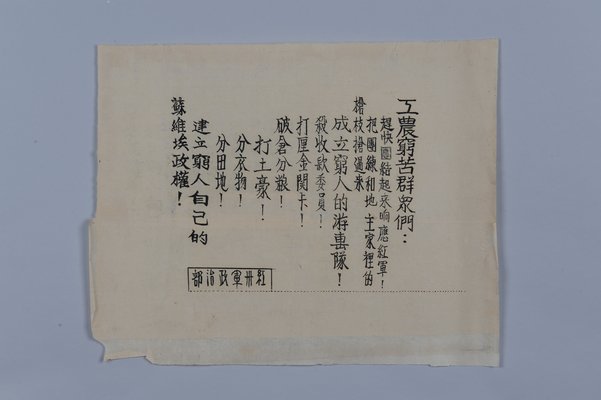 工農窮苦群眾們：
趕快團結起來响應紅軍！
把團練和地主家裡的
槍枝搶過來
成立窮人的游擊隊！
殺收款委員！
打厘金関卡！
破倉分粮！
打土豪！
分衣物！
分田地！
建立窮人自己的
蘇維埃政權！
紅卅軍政治部